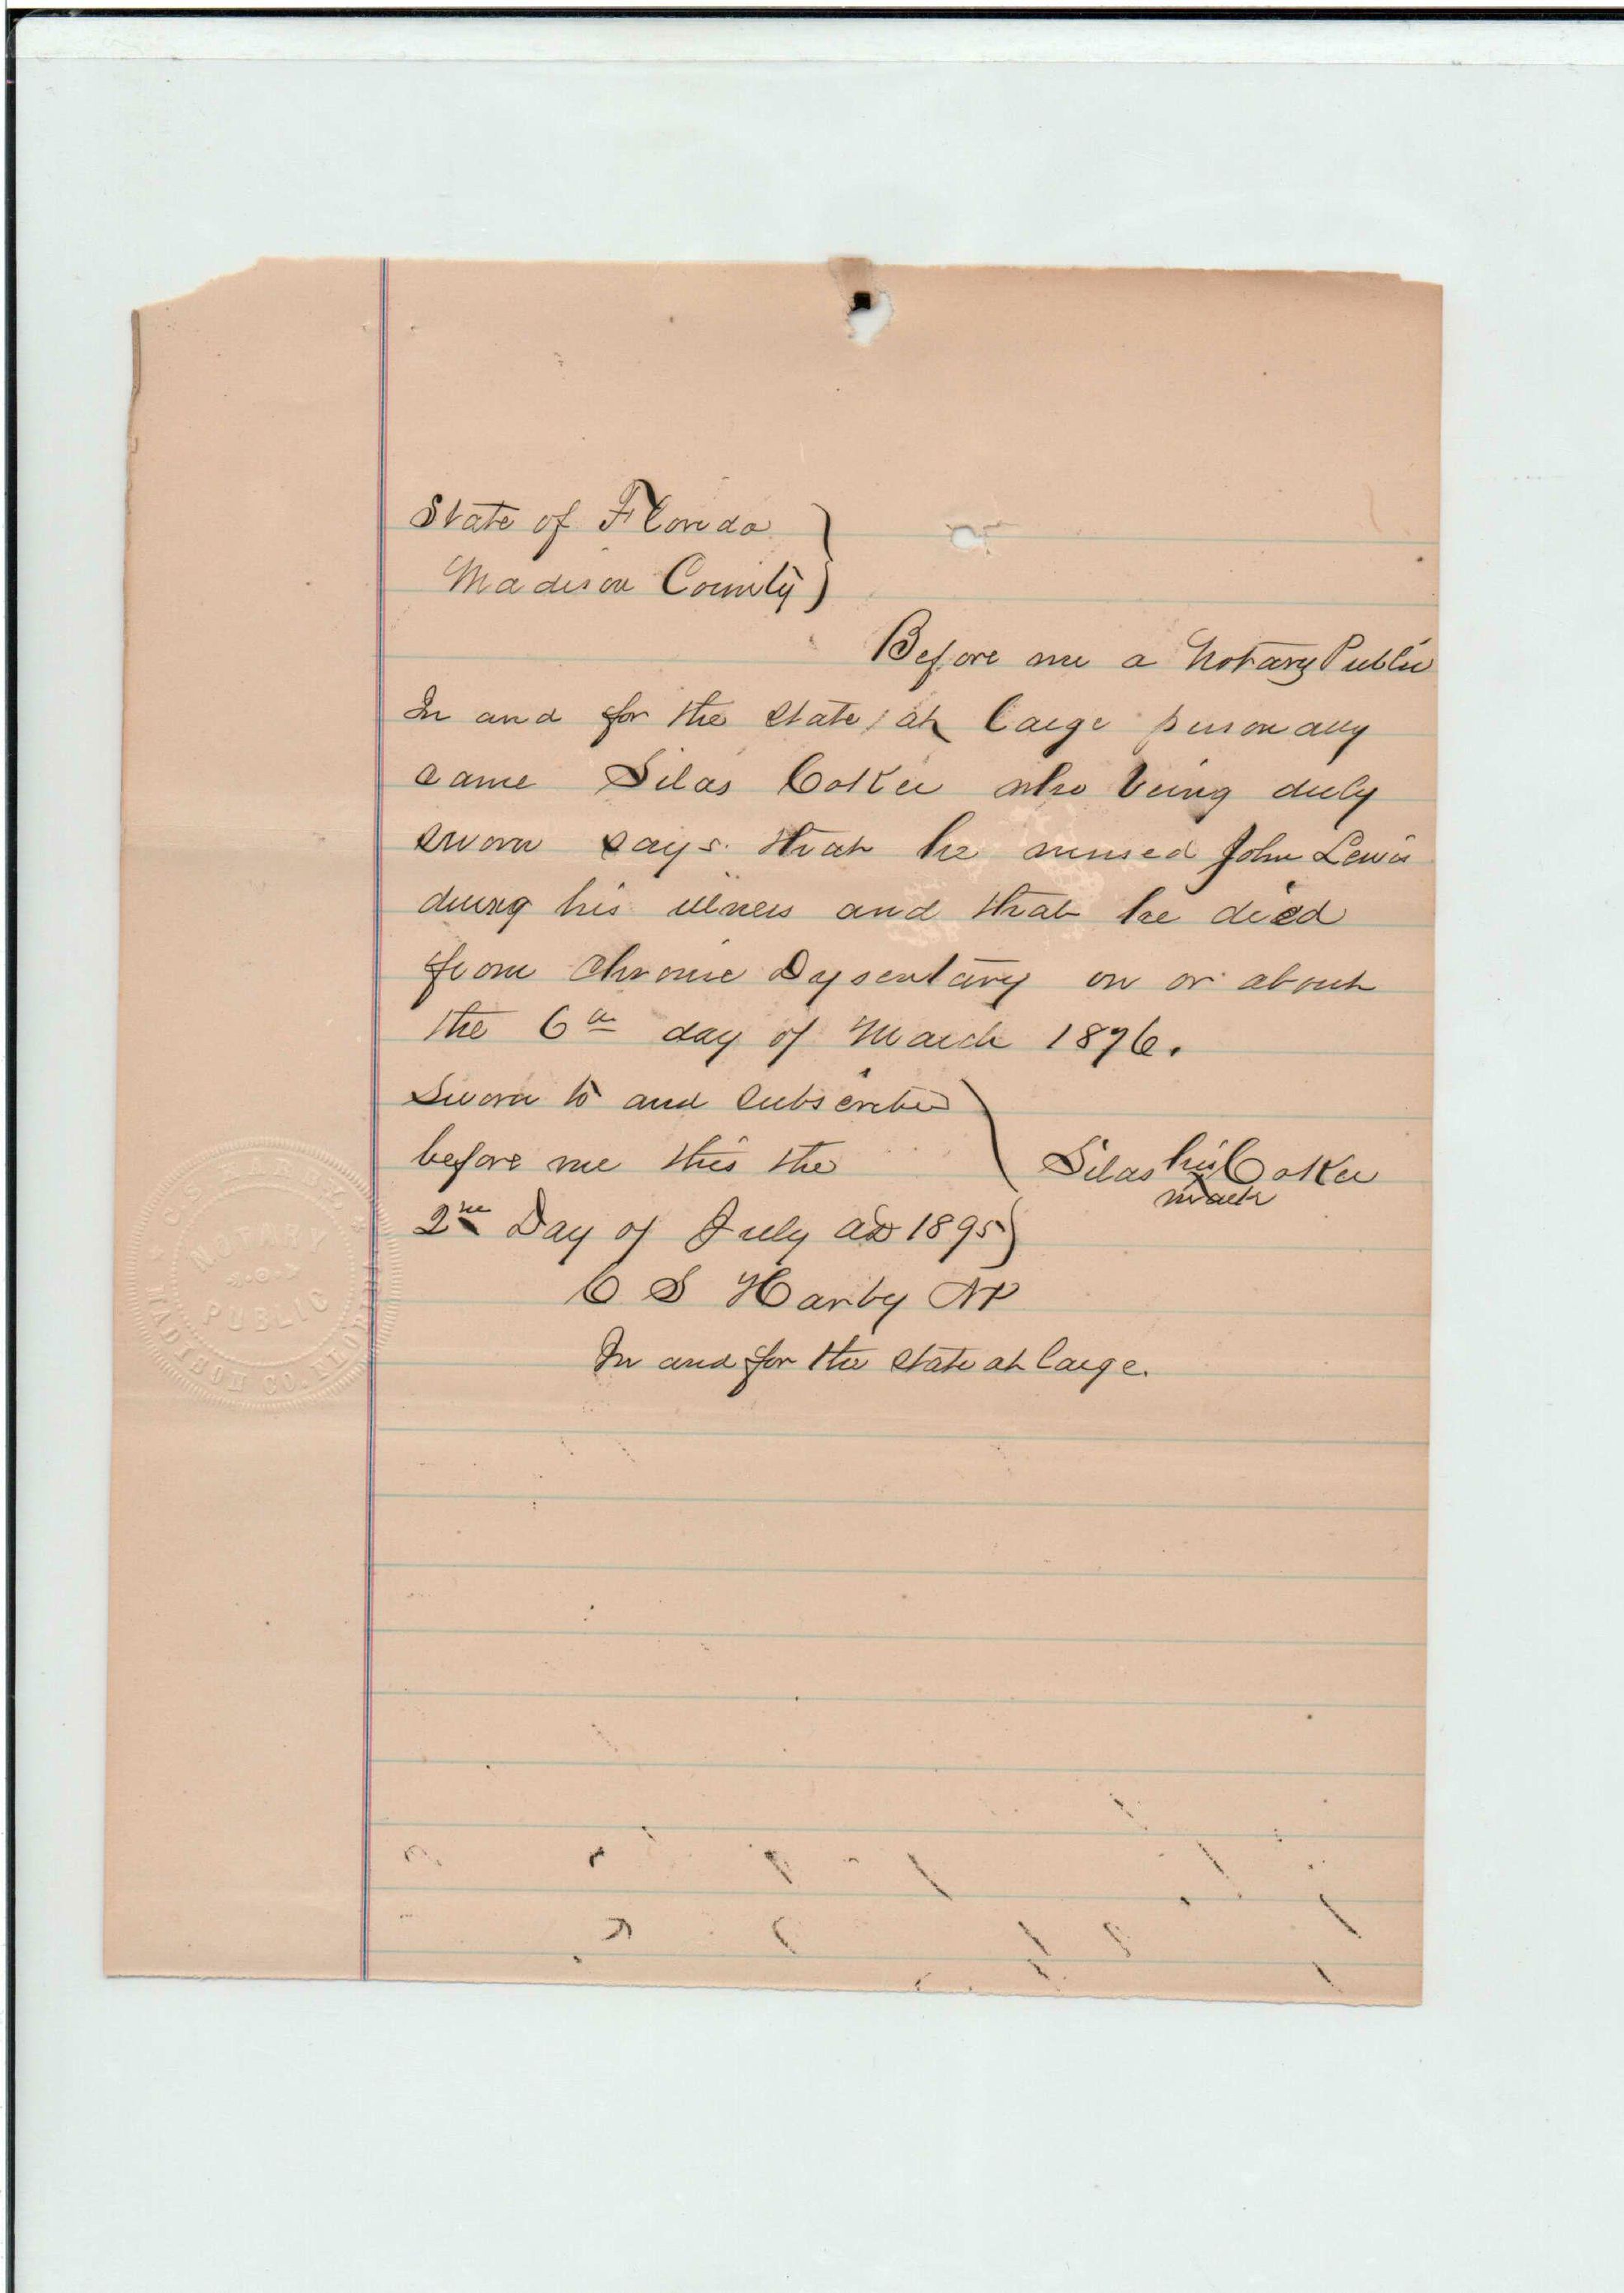 State of Florida
Madison County
Before me a Notary Public
In and for the State at large personally
came Silas Coker who being duly
sworn says that he nursed John Lewis
during his illness and that he died
from Chronic Dysentary on or about
the 6th day of March 1876.
Sworn to and subscribed
before me this the
Silas his Coker
mark
2nd Day of July AD 1895
C S Harby NP
In and for the State at large.
NOTARY
PUBLIC
MADISON CO. FLORIDA